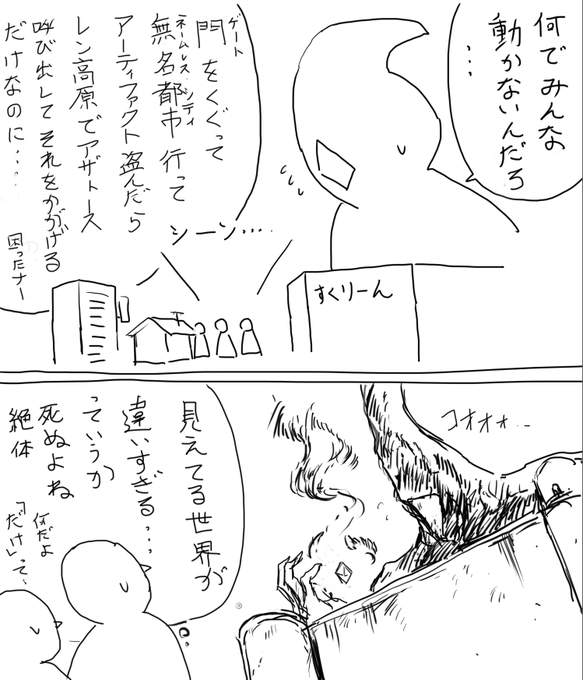 何でみんな
動かないんだろ
…
門をくぐって
ゲート
無名都市 行って
ネームレス・シティ
アーティファクト盗んだら
レン高原でアザトース
呼び出してそれをかかげる
だけなのに……
困ったナー
シーン….
すくりーん
コオオォ…
見えてる世界が
違いすぎる…
っていうか
死ぬよね
絶体
何だよ
「だけ」って、